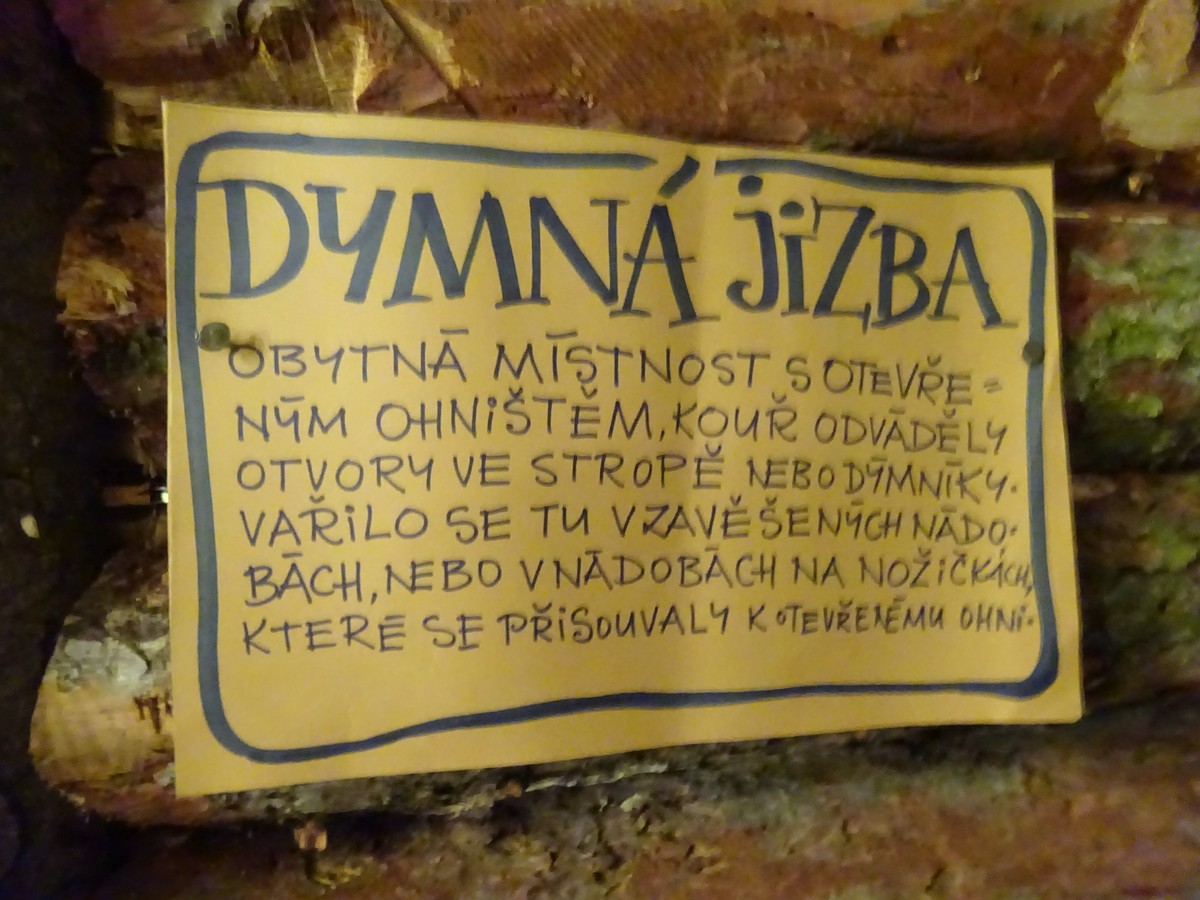 DYMNÁ JIZBA
OBYTNÁ MÍSTNOST S OTEVŘE=
NÝM OHNIŠTĚM, KOUŘ ODVÁDĚLY
OTVORY VE STROPĚ NEBO DÝMNÍKY.
VAŘILO SE TU V ZAVĚŠENÝCH NÁDO-
BÁCH, NEBO V NÁDOBÁCH NA NOŽIČKÁCH,
KTERÉ SE PŘISOUVALY K OTEVŘENÉMU OHNI.